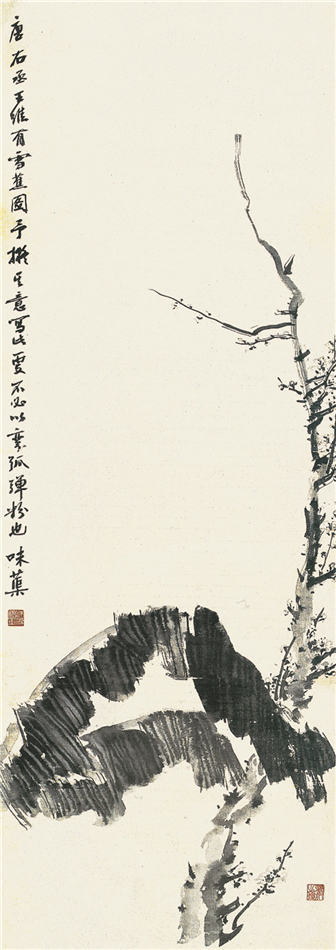 唐右丞王維有雪蕉圖予擬其意寫此要不必以弧彈粉也 味蕖